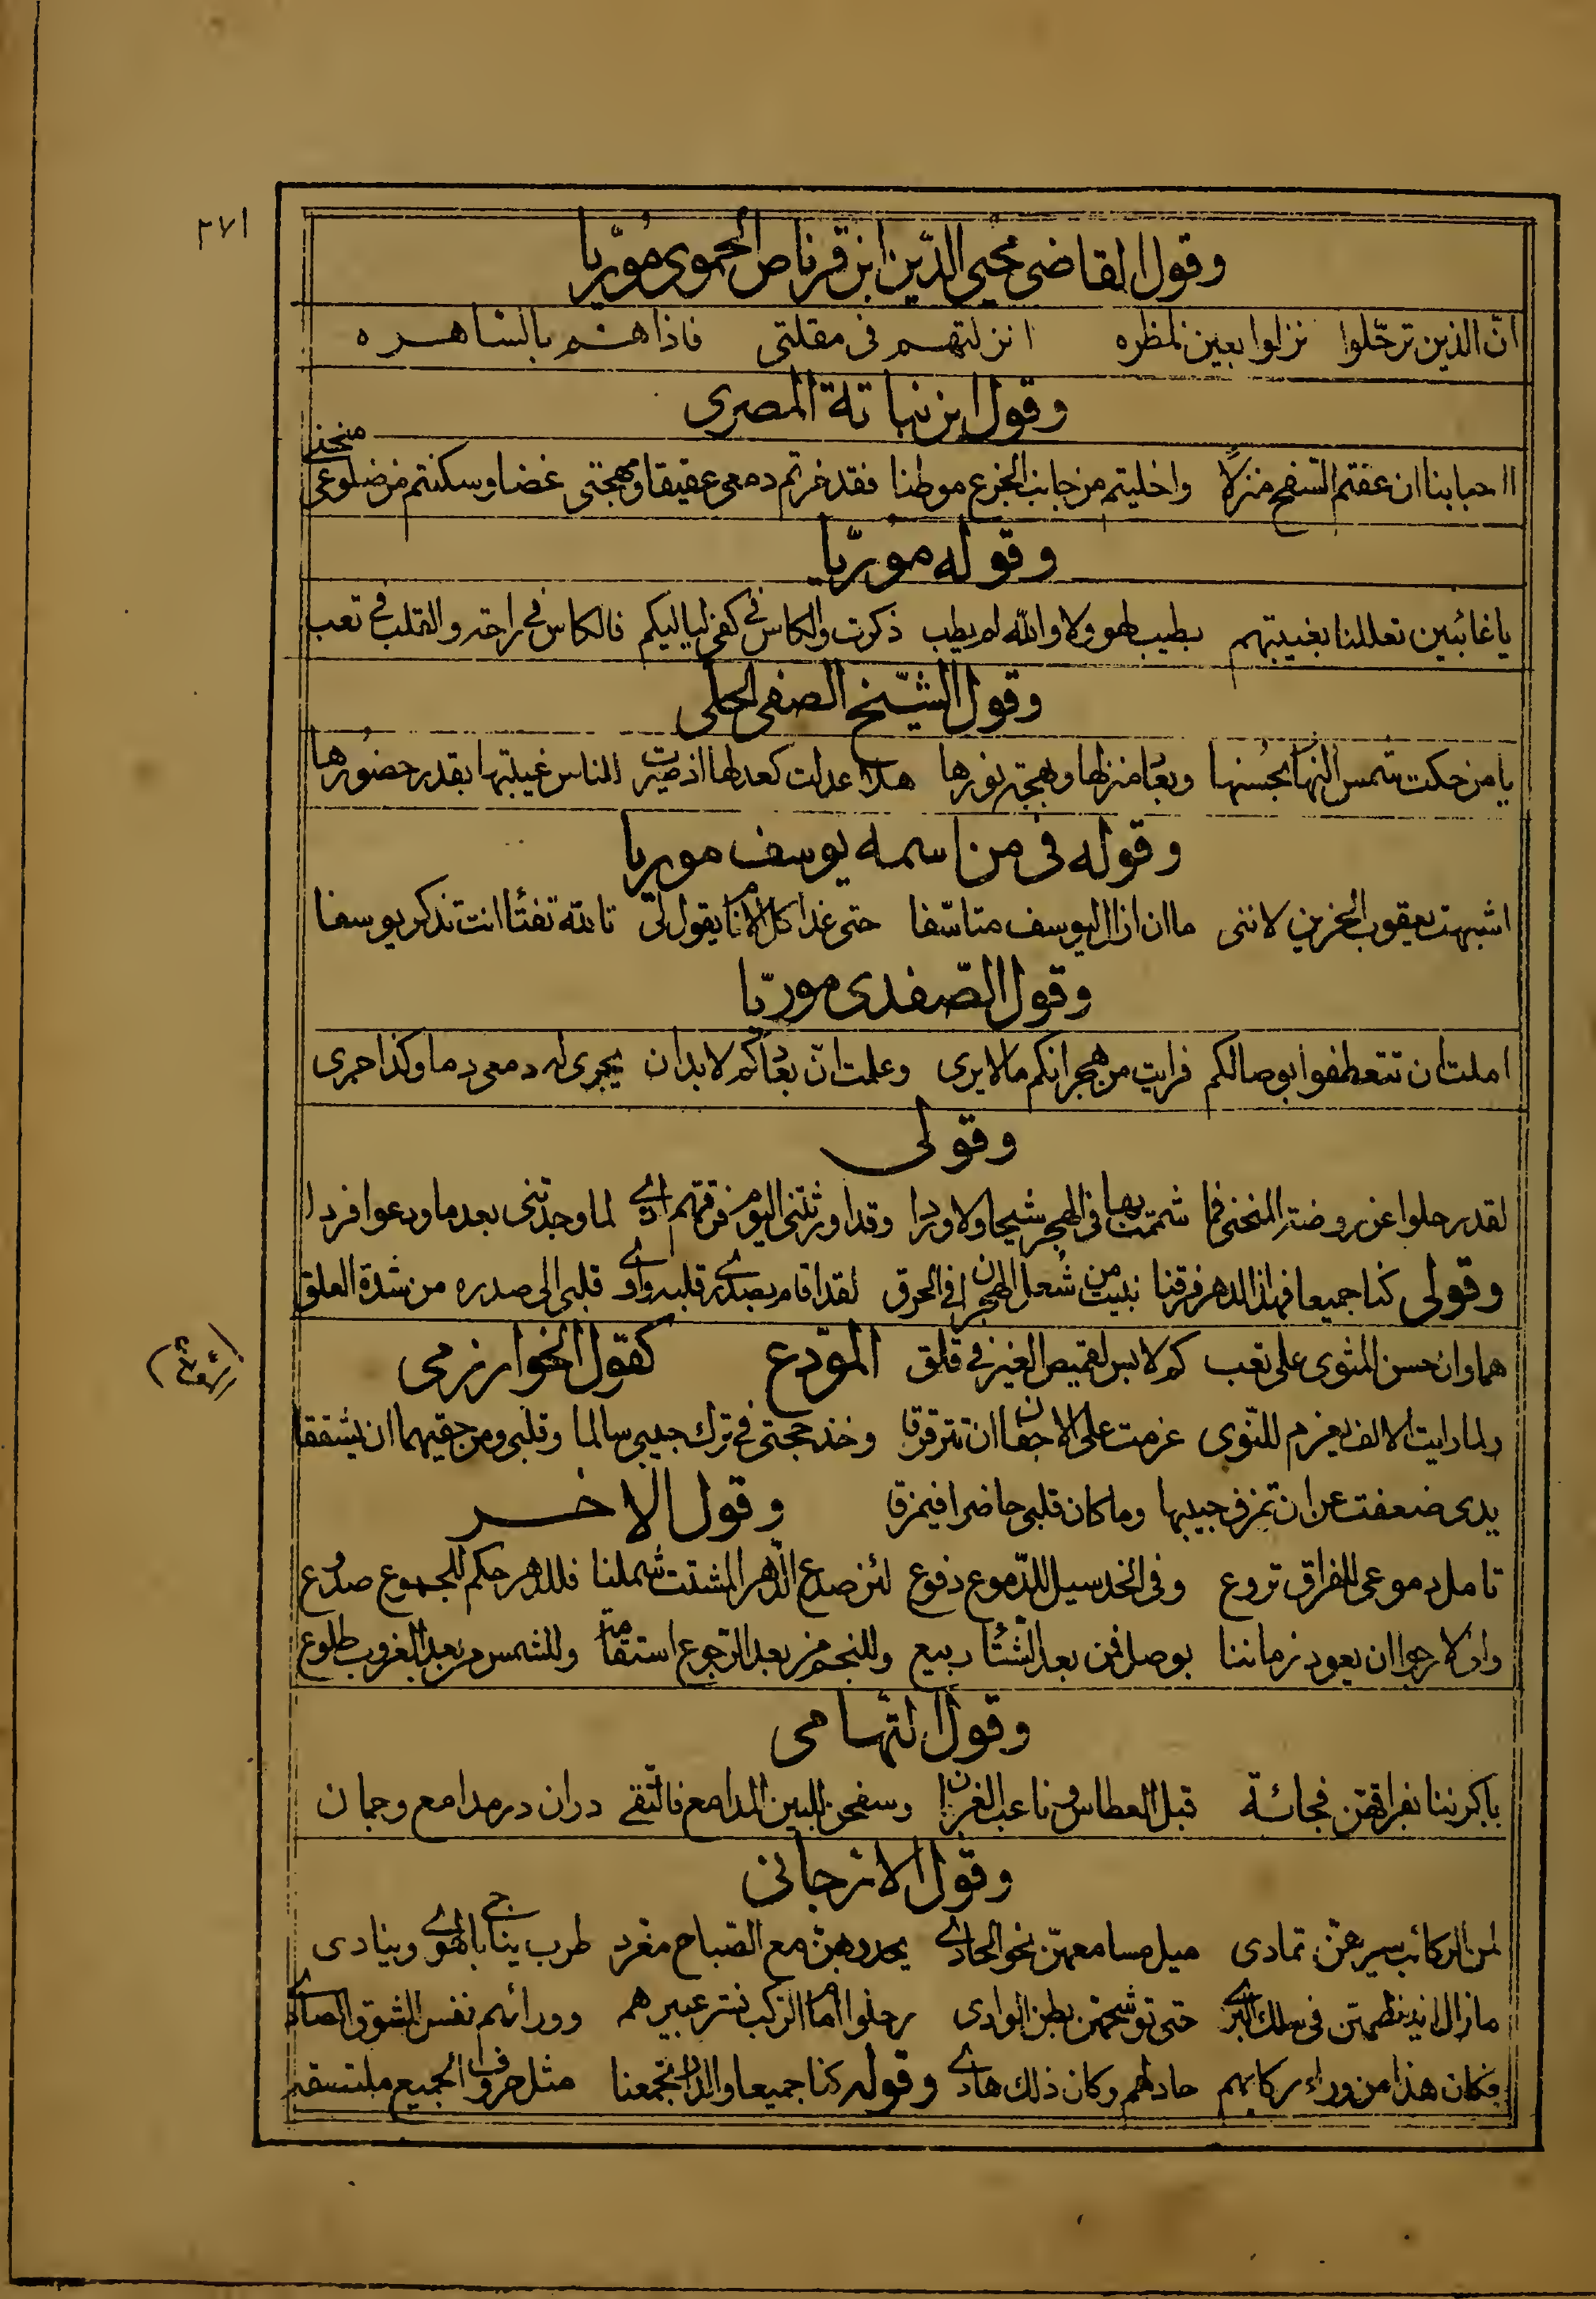 ٢٧١
وقول القاضى محيى الدّين ابن قرناص الحموى مُورّيا
انّ الذين ترحّلوا نزلوا بعين ناظره انزلتهم فى مقلتى فاذا هم بالساهره
وقول ابن نباتة المصرى
ااحبابنا ان عفتم السفح منزلاً واخليتم من جانب الجزع موطنا فقد حزتم دمعى عقيقا ومهجتى غضا وسكنتم من ضلوعى منحنى
وقوله مورّيا
يا غائبين تعللنا بغيبتهم بطيب لهو ولا والله لم يطب ذكرت والكاس فى كفى لياليكم فالكاس فى راحة والقلب فى تعب
وقول الشيخ الصفى الحلى
يا من حكت شمس النهار بحُسنها وبعاد منزلها وبهجة نورها هلا عدلت كعدلها اذ صيرت للناس غيبتها بقدر حضُورها
وقوله فى من اسمه يوسف موريا
اشبهت يعقوب الحزين لاننى ما ان ازال ليوسف متاسّفا حتى غدا كل الانام يقول لى تالله تفتأ انت تذكر يوسفا
وقول الصّفدى مورّيا
املت ان تتعطفوا بوصالكم فرايت من هجرانكم ما لا يرى وعلمت انّ بعادكم لا بد ان يجرى له دمعى دما وكذا جرى
وقولى
لقد رحلوا عن روضة المنحنى فما شممت بها فى الهجر شيحا ولا وردا وقد اورثتنى اليوم فرقتهم اذى لما وجدتنى بعد ما ودعوا فردا
وقولى كنا جميعا فهذا الدهر فرقنا نبيت من شعل الهجران فى الحرق لقد اقام بصدرى قلبه واوى قلبى الى صدره من شدة العلق
هما وان حسن المثوى على تعب كم لابس لقميص الغير فى قلق المودّع كقول الخوارزمى
ولما رايت الالف يعزم للنّوى عزمت على الاجفان ان تترقرقا وخذ حجتى فى ترك جيبى سالما وقلبى ومن حقيهما ان يشققا
يدى ضعفت عن ان تمزق جيبها وما كان قلبى حاضرا فيمزقا وقول الاخر
تامل دموعى للفراق تروع وفى الخد سيل للدّموع دفوع لئن صدع الدّهر المشتت شملنا فللدهر حكم للجموع صدُوع
وانى لارجوا ان يعود زماننا بوصل فمن بعد الشتاء ربيع وللنجم من بعد الرّجوع استقامة وللشمس من بعد الغروب طلوع
وقول التهامى
باكرننا بفراقهن فجائة قبل العطاس وناعب الغربان وسفحن للبين المدامع فالتقى دران در مدامع وجمان
وقول الارجانى
لمن الركائب سيرهنّ تمادى ميل مسامعهنّ نحو الحادى يحدوهنّ مع الصّباح مغرد طرب يناجى بالهوى وينادى
ما زال اذ ينظمهن فى سلك البرى حتى توشحهن بطن الوادى رحلوا امام الركب نشر عبيرهم وورائهم نفس المشوق الصادى
فكان هذا من وراء ركابهم حاد لهم وكان ذلك هادى وقوله كنا جميعا والدار تجمعنا مثل حروف الجميع ملتسقه